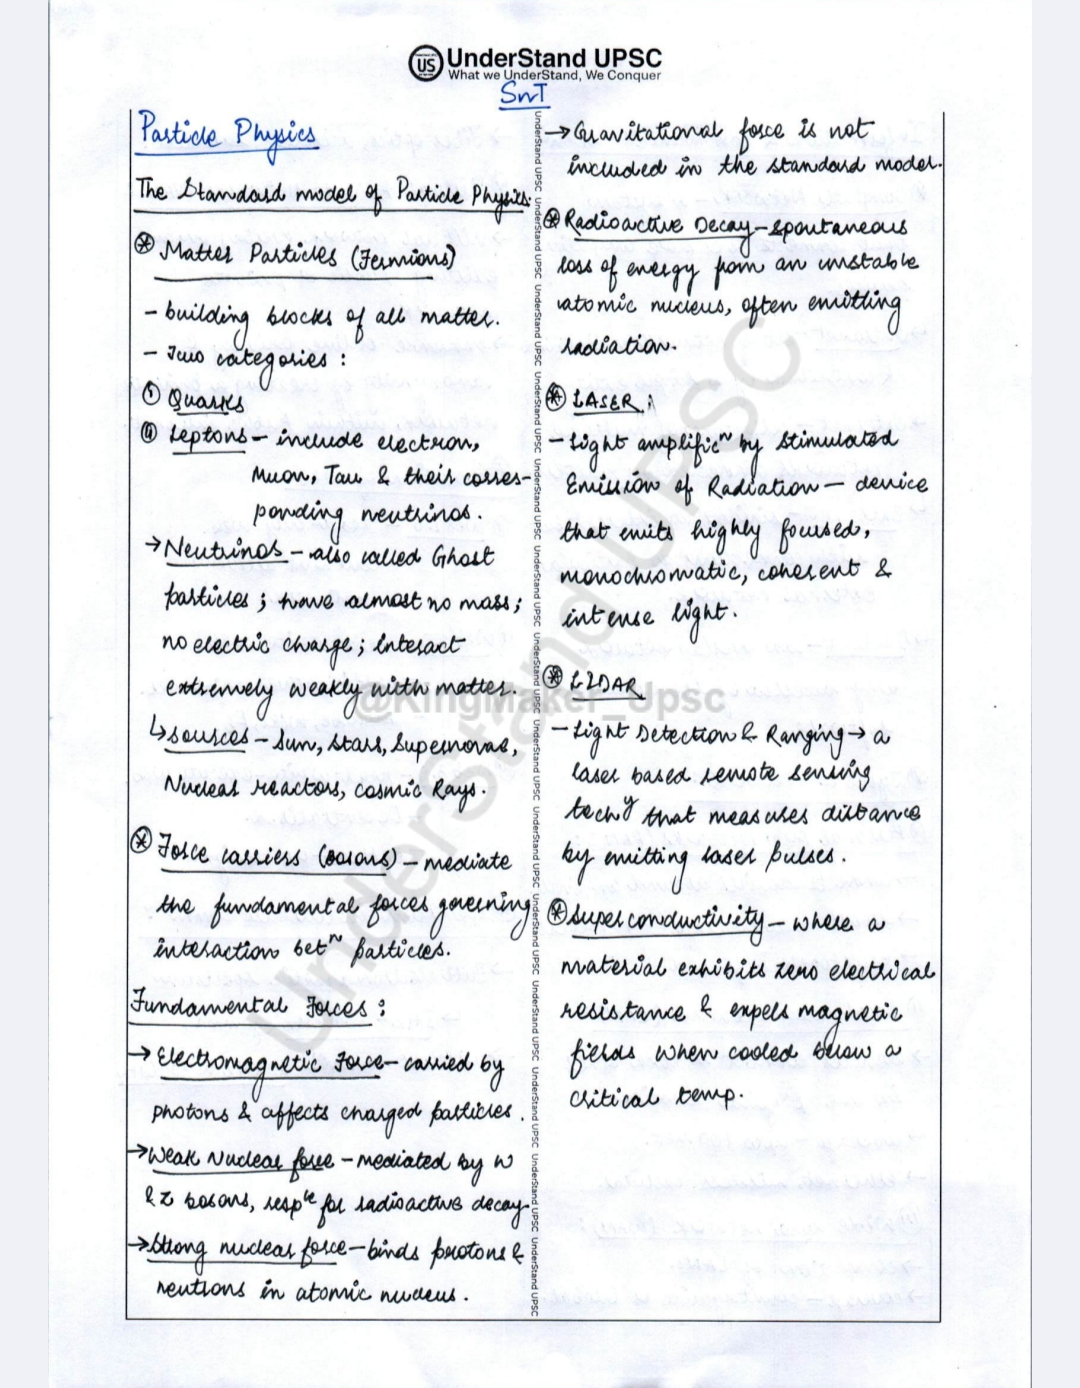 US
UnderStand UPSC
What we UnderStand, We Conquer
SnT
Particle Physics
The Standard model of Particle Physics:
* Matter Particles (Fermions)
- building blocks of all matter.
- Two categories :
(i) Quarks
(ii) Leptons - include electron,
Muon, Tau & their corres-
ponding neutrinos.
→ Neutrinos - also called Ghost
particles ; have almost no mass ;
no electric charge ; interact
extremely weakly with matter.
↳ sources - Sun, Stars, Supernovae,
Nuclear reactors, cosmic Rays.
* Force carriers (bosons) - mediate
the fundamental forces governing
interaction betⁿ particles.
Fundamental Forces :
→ Electromagnetic Force - carried by
photons & affects charged particles.
→ Weak Nuclear force - mediated by W
& Z bosons, respᵇˡᵉ for radioactive decay.
→ Strong nuclear force - binds protons &
neutrons in atomic nucleus.
→ Gravitational force is not
included in the standard model.
* Radioactive Decay - spontaneous
loss of energy from an unstable
atomic nucleus, often emitting
radiation.
* LASER :
- Light amplificⁿ by Stimulated
Emission of Radiation - device
that emits highly focused,
monochromatic, coherent &
intense light.
* LIDAR
- Light Detection & Ranging → a
laser based remote sensing
techʸ that measures distance
by emitting laser pulses.
* Superconductivity - where a
material exhibits zero electrical
resistance & expels magnetic
fields when cooled below a
critical temp.
UnderStand UPSC UnderStand UPSC UnderStand UPSC UnderStand UPSC UnderStand UPSC UnderStand UPSC UnderStand UPSC UnderStand UPSC UnderStand UPSC UnderStand UPSC UnderStand UPSC UnderStand UPSC UnderStand UPSC UnderStand UPSC
UnderStand UPSC
@KingMaker_Upsc